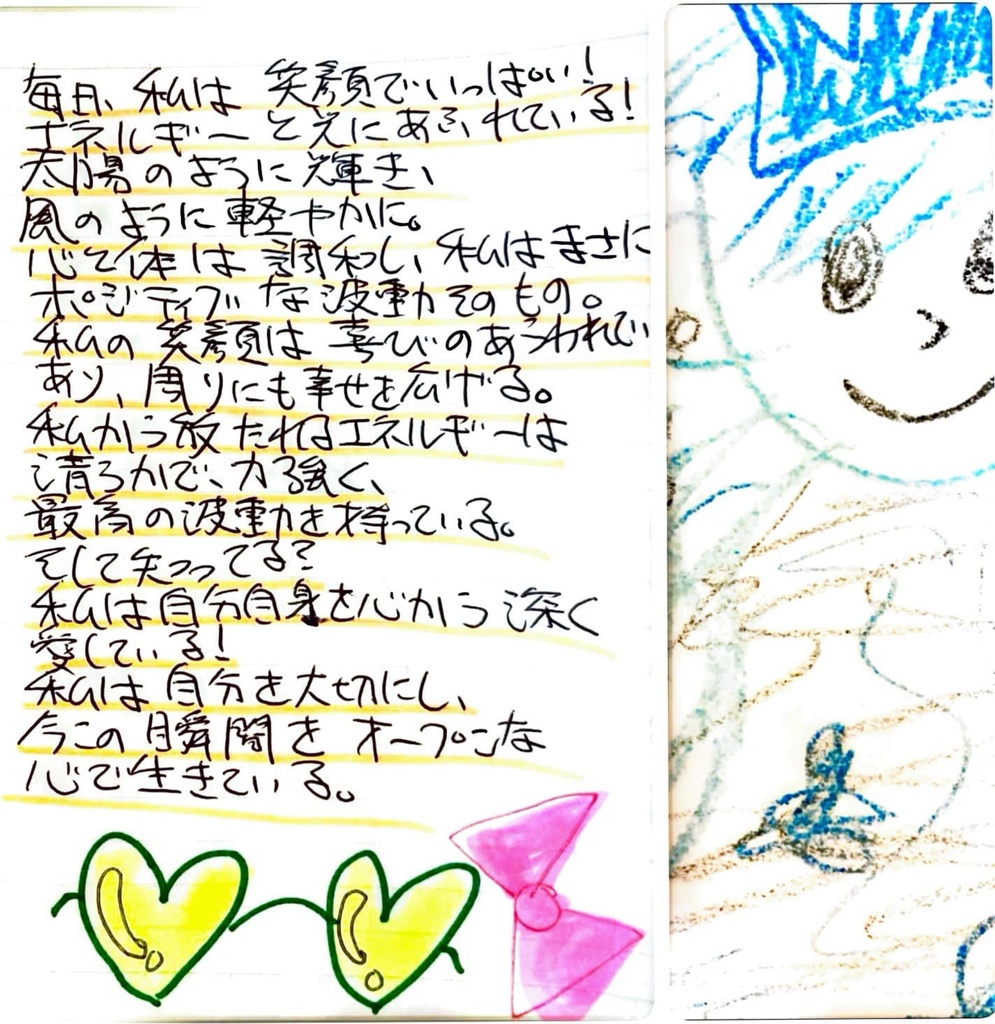 毎日、私は笑顔でいっぱい!
エネルギーと光にあふれている!
太陽のように輝き、
風のように軽やかに。
心と体は調和し、私はまさに
ポジティブな波動そのもの。
私の笑顔は喜びのあらわれで
あり、周りにも幸せを広げる。
私から放たれるエネルギーは
清らかで、力強く、
最高の波動を持っている。
そして知ってる?
私は自分自身を心から深く
愛している!
私は自分を大切にし、
今この瞬間をオープンな
心で生きている。